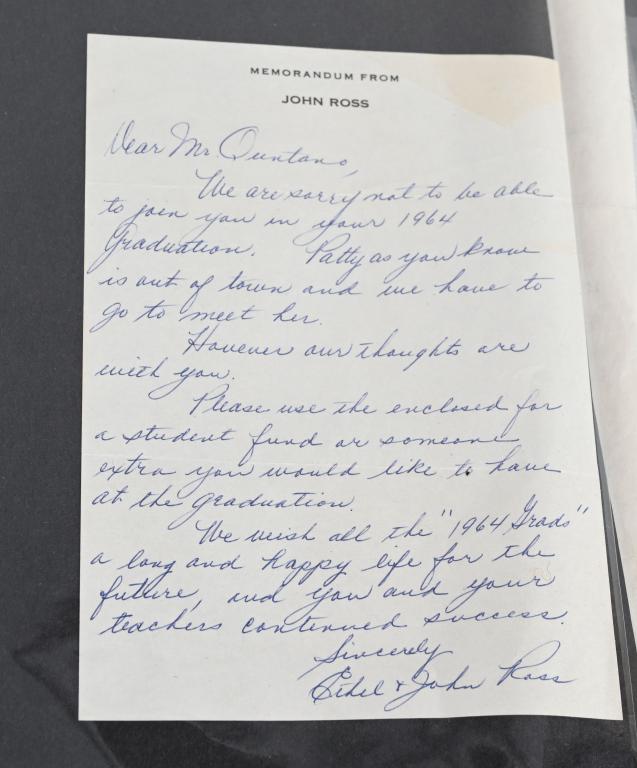 MEMORANDUM FROM
JOHN ROSS
Dear Mr. Quntano,
We are sorry not to be able
to join you in your 1964
Graduation. Patty as you know
is out of town and we have to
go to meet her.
However our thoughts are
with you.
Please use the enclosed for
a student fund or someone
extra you would like to have
at the graduation.
We wish all the "1964 Grads"
a long and happy life for the
future, and you and your
teachers continued success.
Sincerely
Ethel & John Ross